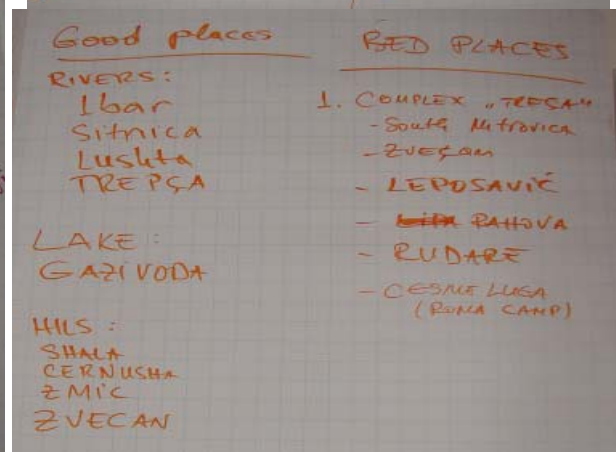 Good places
RIVERS:
Ibar
Sitnica
Lushta
TREPÇA
LAKE:
GAZIVODA
HILS:
SHALA
CERNUSHA
ZMIC
ZVECAN
BED PLACES
1. COMPLEX „TREŞA"
- South Mitrovica
- ZVEÇAN
- LEPOSAVIĆ
- RAHOVA
- RUDARE
- CESME LUGA
(ROMA CAMP)